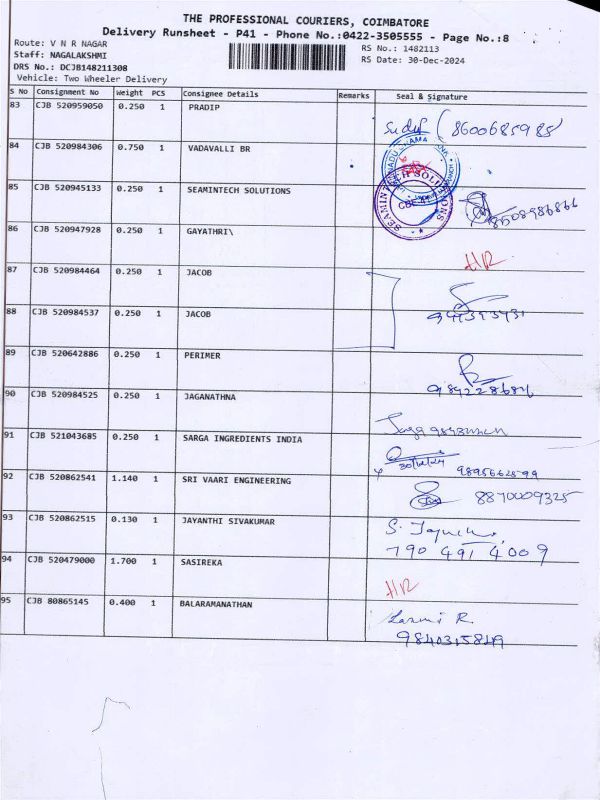 THE PROFESSIONAL COURIERS, COIMBATORE
Delivery Runsheet - P41 - Phone No.:0422-3505555 - Page No.:8
Route: V N R NAGAR
Staff: NAGALAKSHMI
DRS No.: DCJB148211308
Vehicle: Two Wheeler Delivery
RS No.: 1482113
RS Date: 30-Dec-2024
S No Consignment No Weight PCS Consignee Details Remarks Seal & Signature
83 CJB 520959050 0.250 1 PRADIP 8600685985
84 CJB 520984306 0.750 1 VADAVALLI BR
85 CJB 520945133 0.250 1 SEAMINTECH SOLUTIONS 8508986866
86 CJB 520947928 0.250 1 GAYATHRI\
87 CJB 520984464 0.250 1 JACOB
88 CJB 520984537 0.250 1 JACOB
89 CJB 520642886 0.250 1 PERIMER
90 CJB 520984525 0.250 1 JAGANATHNA
91 CJB 521043685 0.250 1 SARGA INGREDIENTS INDIA 30/12/24 9895662599
92 CJB 520862541 1.140 1 SRI VAARI ENGINEERING 8870009325
93 CJB 520862515 0.130 1 JAYANTHI SIVAKUMAR
790 491 4009
94 CJB 520479000 1.700 1 SASIREKA
95 CJB 80865145 0.400 1 BALARAMANATHAN Laxmi R.
9840315849